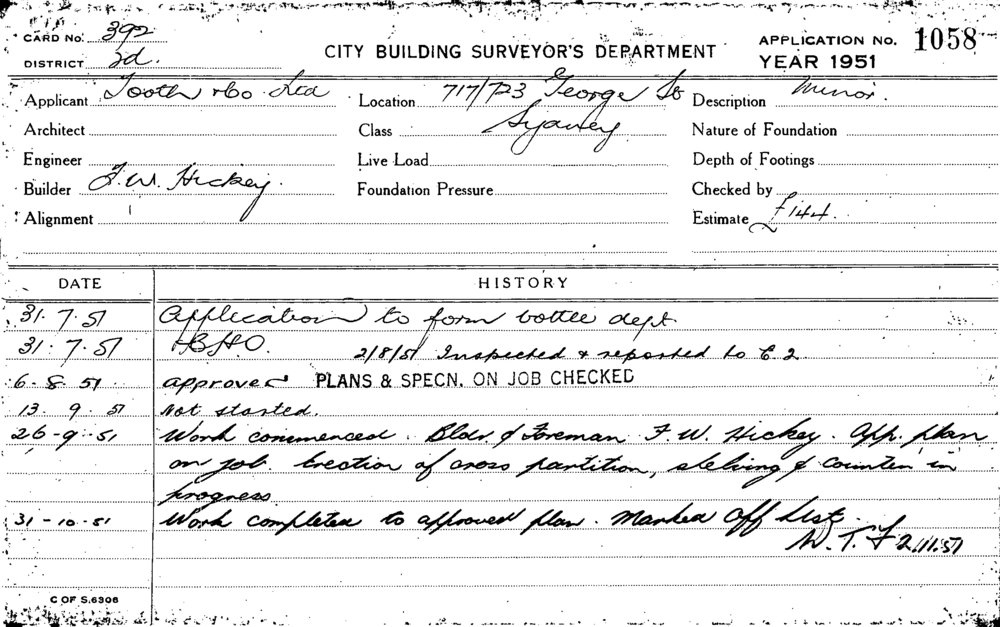 CARD No. 392
DISTRICT 3d.
CITY BUILDING SURVEYOR'S DEPARTMENT
APPLICATION No. 1058
YEAR 1951
Applicant Tooth & Co Ltd
Location 717/723 George St
Sydney
Description Minor.
Architect
Class
Nature of Foundation
Engineer
Live Load
Depth of Footings
Builder F.W. Hickey.
Foundation Pressure
Checked by
Alignment
Estimate £144.
DATE HISTORY
31.7.51 Application to form bottle dept
31.7.51 B.H.O. 2/8/51 Inspected & reported to E.2
6-8.51 approved PLANS & SPECN. ON JOB CHECKED
13.9.51 Not started.
26-9-51 Work commenced. Bldr. & Foreman F.W. Hickey. App. plan
on job. Erection of cross partition, shelving & counter in
progress
31-10-51 Work completed to approved plan. Marked Off List.
W.T.F 2.11.51
C OF S.6306